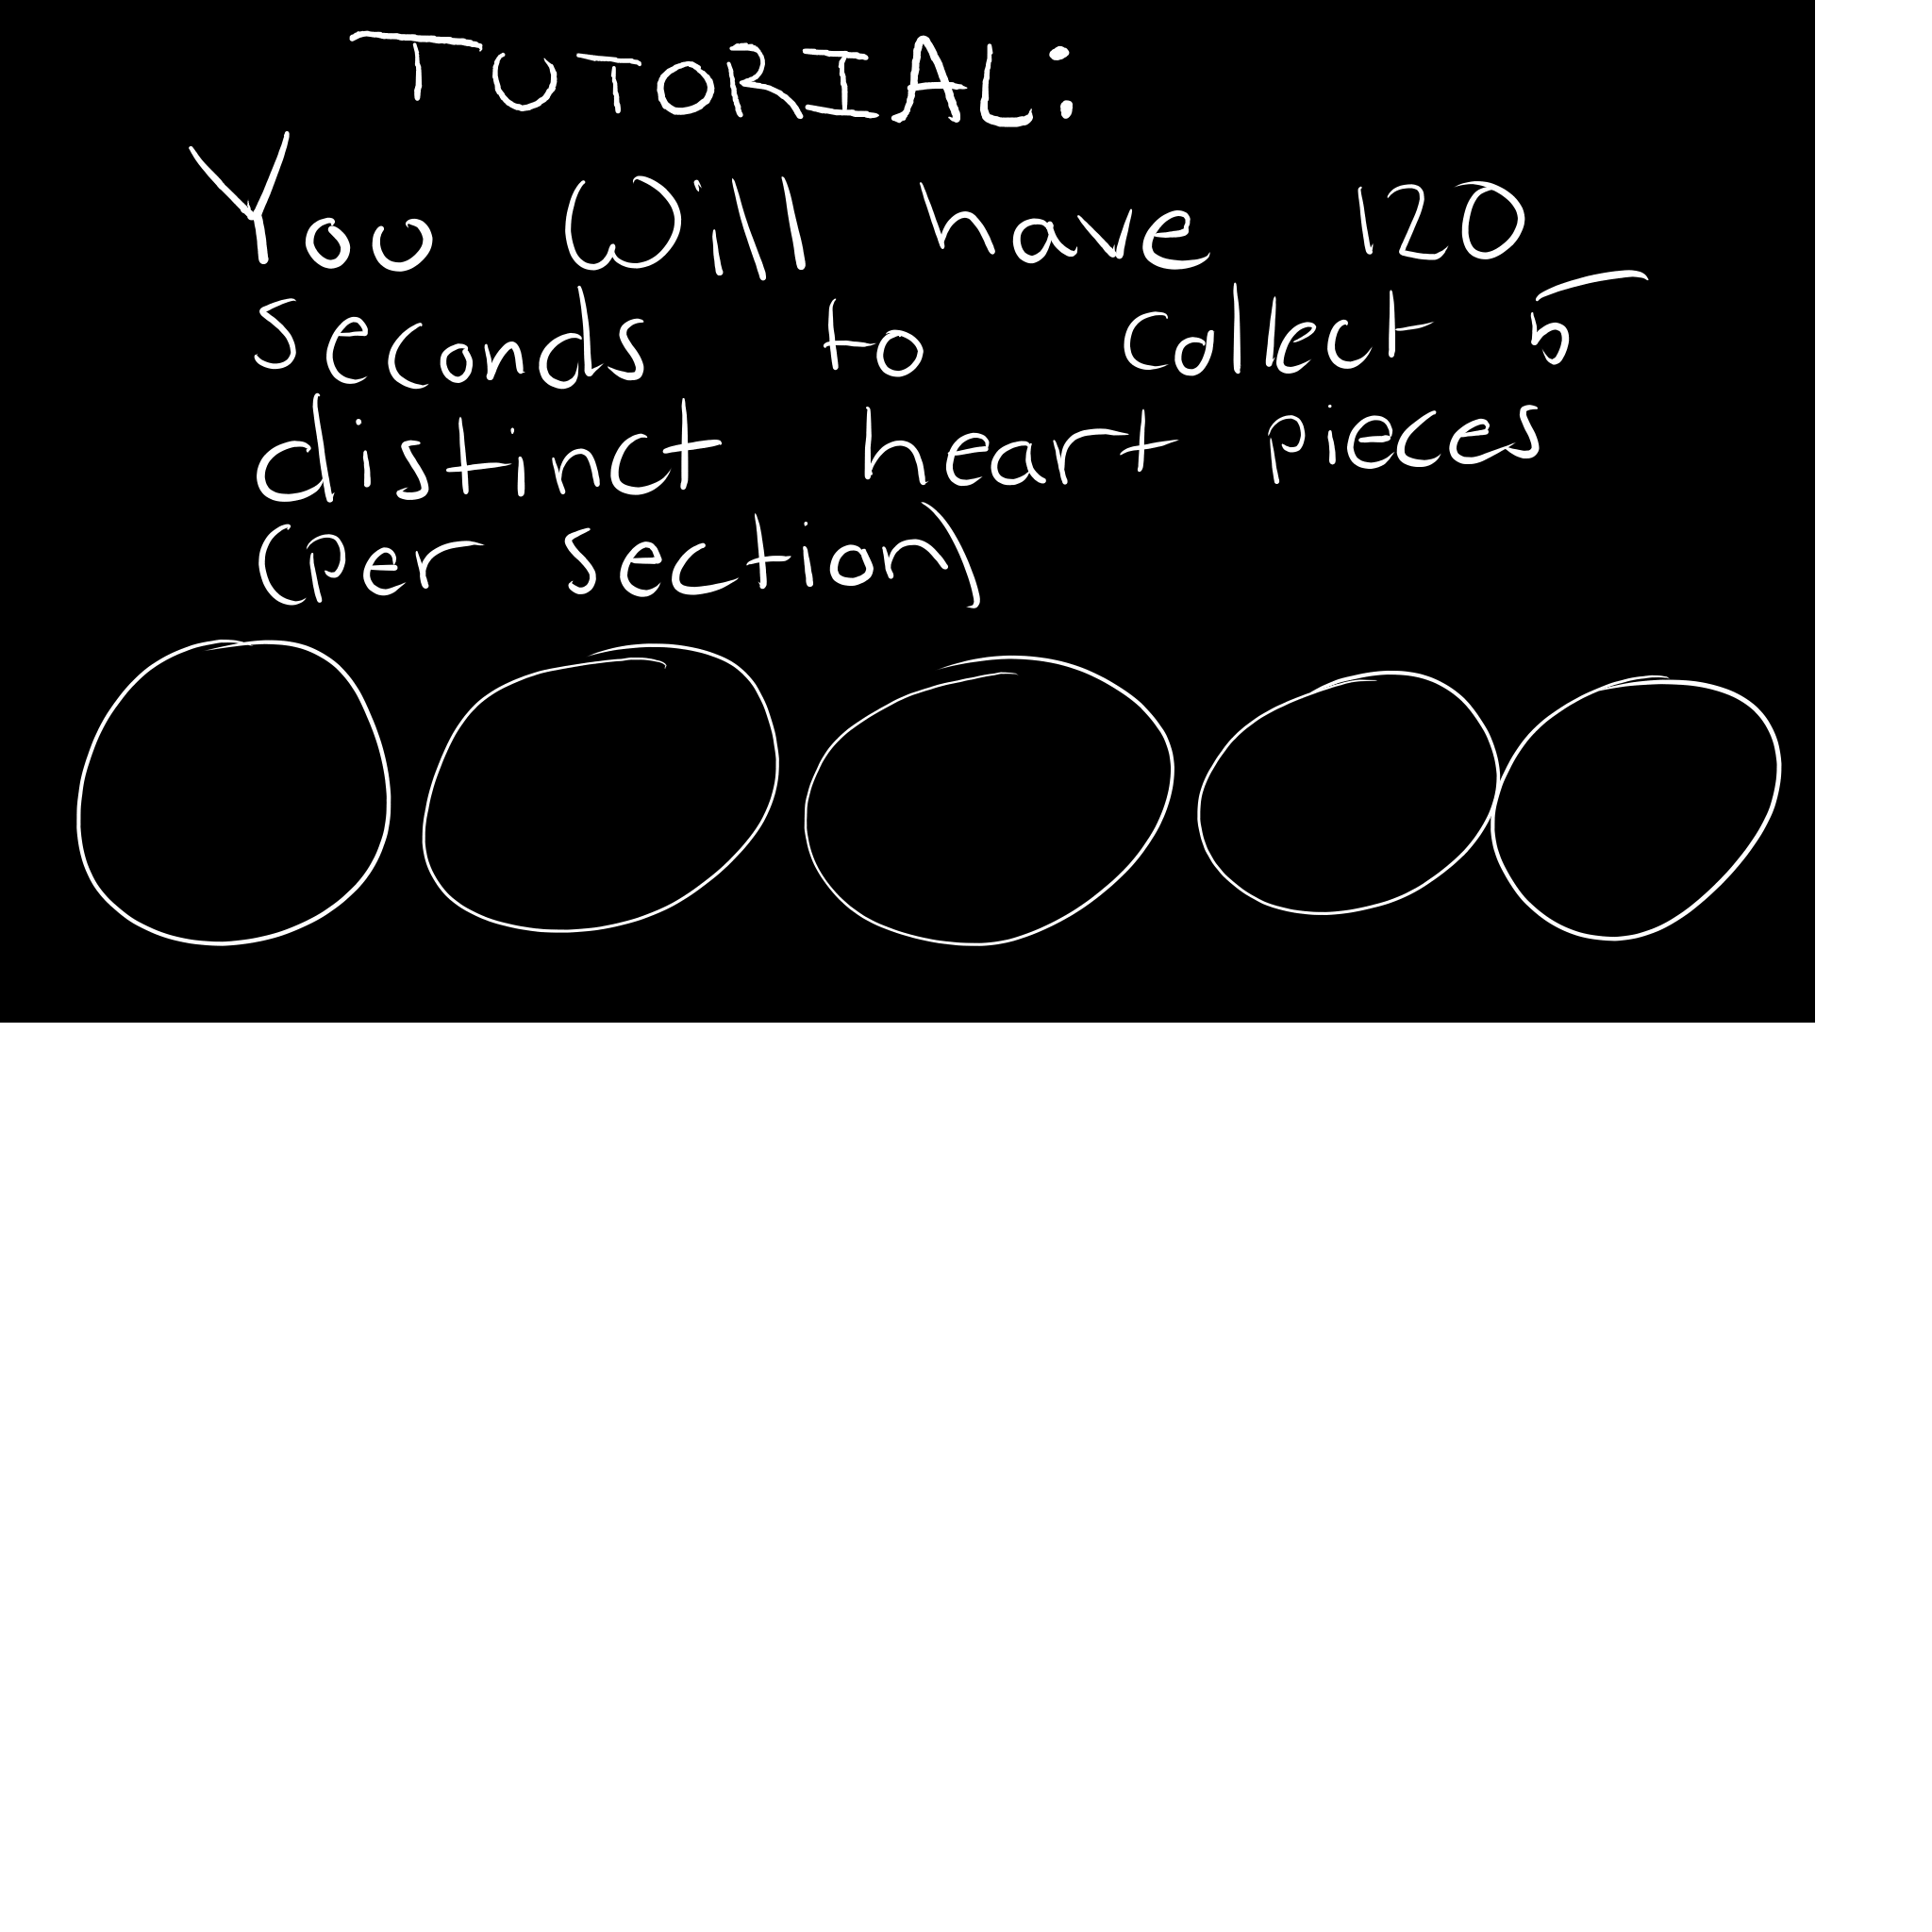 TUTORIAL:
You Will have 120
Seconds to Collect 5
distinct heart pieces
(per section)